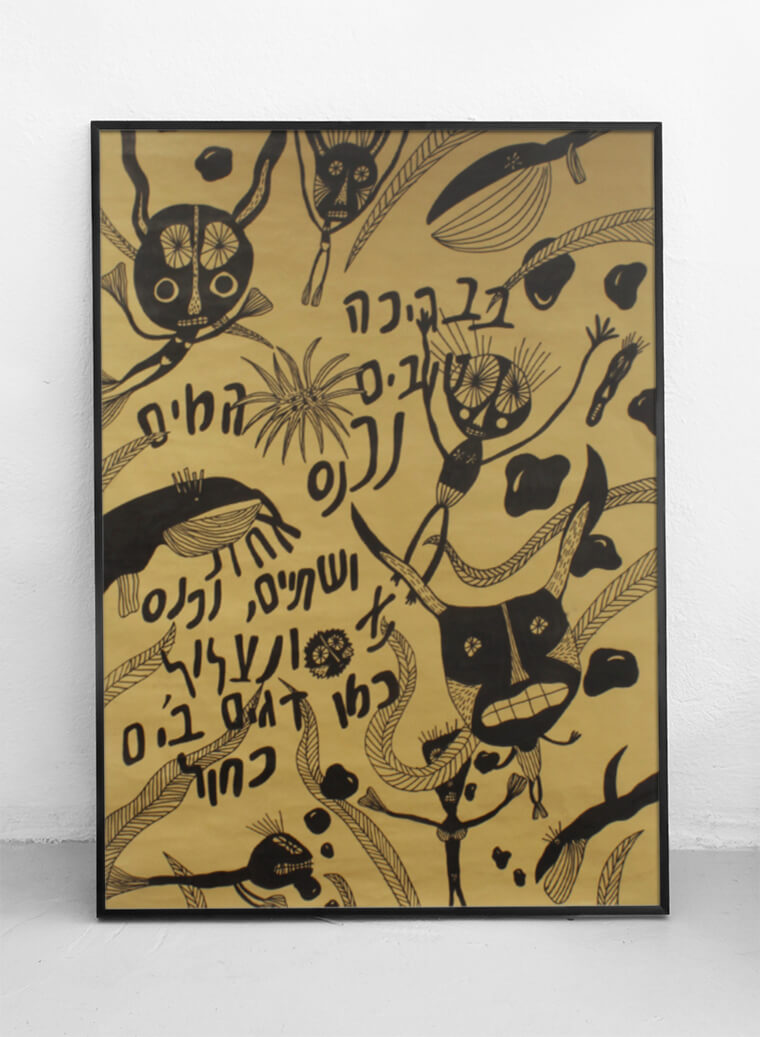 בבריכה
טובים המים
נכנס
אחת
ושתים, נכנס
ונצלול
כמו דגים בים
כחול